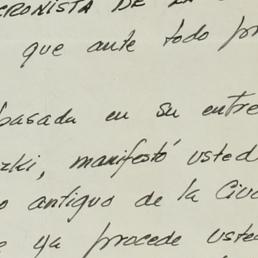 CRONISTA DE LA
que ante todo
basada en su entre
zki, manifestó usted
antiguo de la Ciu
ya procede uste